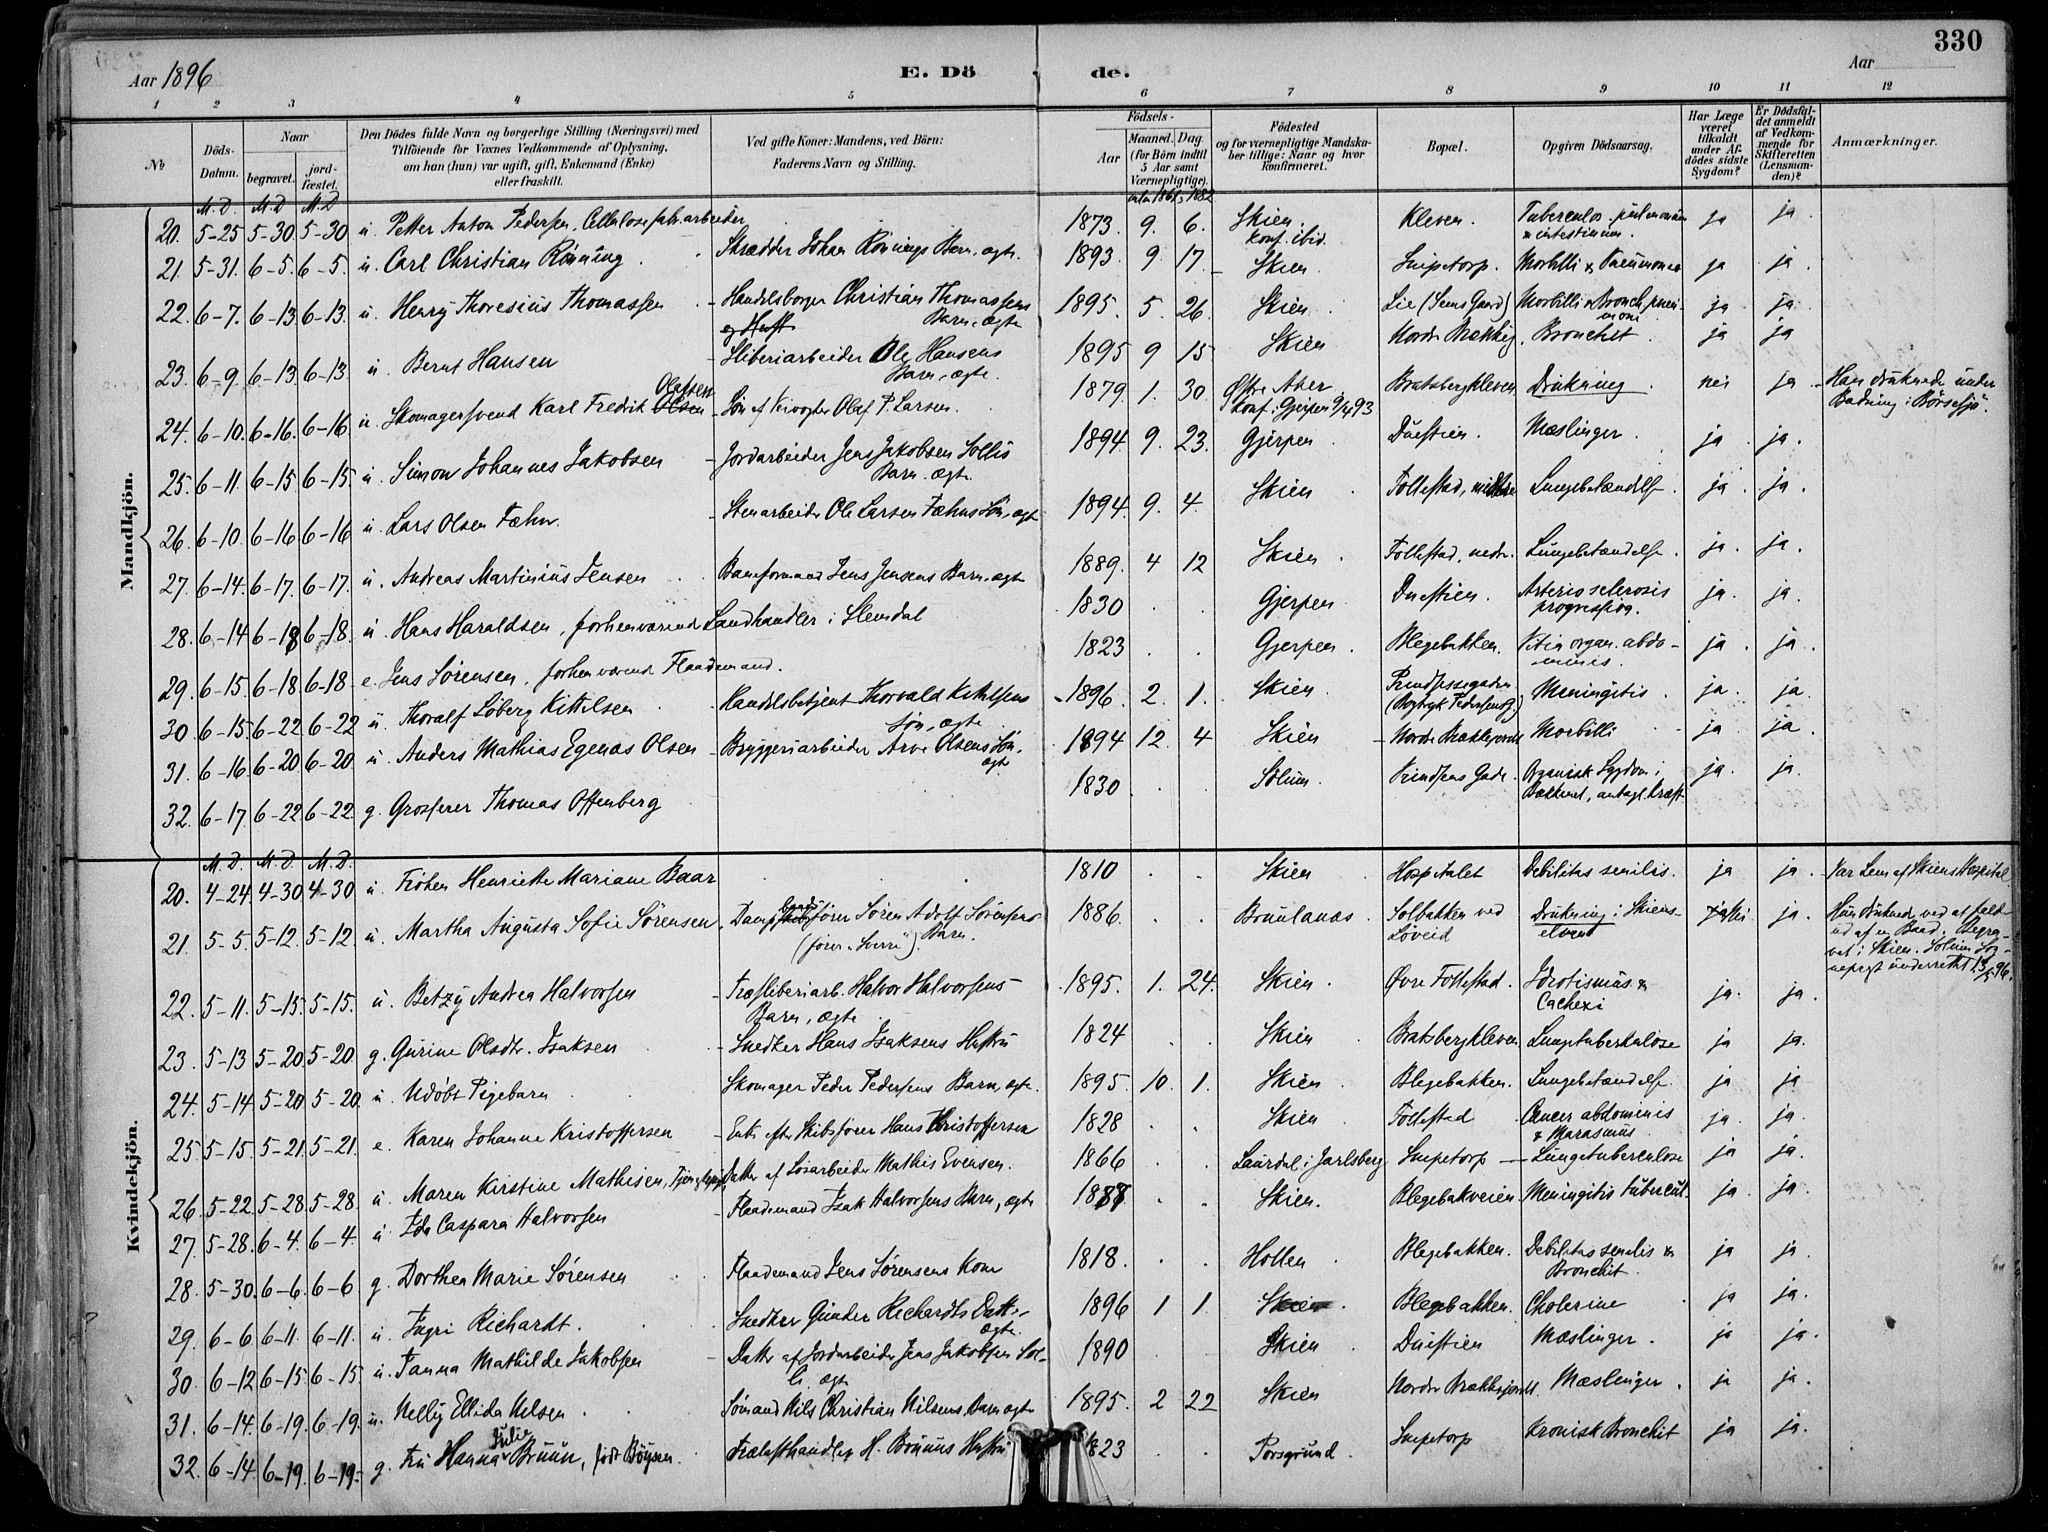 330
Aar 1896
E. Dö de.
Aar
1 2 3 4 5 6 7 8 9 10 11 12
No
Döds-Datum.
Naar begravet. jord-fæstet.
Den Dödes fulde Navn og borgerlige Stilling (Næringsvei) med Tilföiende for Voxnes Vedkommende af Oplysning, om han (hun) var ugift, gift, Enkemand (Enke) eller fraskilt.
Ved gifte Koner: Mandens, ved Börn: Faderens Navn og Stilling.
Födsels- Aar Maaned. Dag. (for Börn indtil 5 Aar samt Værnepligtige).
Födested og for værnepligtige Mandskaber tillige: Naar og hvor konfirmeret.
Bopæl.
Opgiven Dödsaarsag.
Har Læge været tilkaldt under Afdödes sidste Sygdom?
Er Dödsfaldet anmeldt af Vedkommende for Skifteretten (Lensmanden)?
Anmærkninger.
Mandkjön.
M. D. M. D. M. D.
20. 5-25 5-30 5-30 u. Petter Anton Pedersen, Cellulosefabr.arbeider 1873 9. 6. Skien konf. ibid. Kleven. Tuberculos. pulmonum & intestinum. ja ja.
21. 5-31. 6-5. 6-5. u. Carl Christian Rönning. Skrædder Johan Rönnings Barn, ægte. 1893 9 17 Skien Snipetorp. Morbilli & Pneumonia ja ja.
22. 6-7. 6-13. 6-13. u. Henry Thoresius Thomassen Handelsborger Christian Thomassens Barn, ægte 1895. 5. 26. Skien Lie (Sems Gaard) Morbilli & Bronch.pneumoni ja ja.
23. 6-9. 6-13. 6-13. u. Bernt Hansen Sliberiarbeider Ole Hansens Barn, ægte. 1895 9 15 Skien Nordr Brækkeg. Bronchit. ja ja
24. 6-10. 6-16. 6-16 u. Skomagersvend Karl Fredrik Olsen Olafsen Søn af Veivogter Olaf P. Larsen. 1879. 1. 30. Østre Aker konf. i Gjerpen 9/4 93 Bratsbergkleven Drukning. nei ja Han druknede under Badning i Børsesjø.
25. 6-11. 6-15. 6-15. u. Simon Johannes Jakobsen Jordarbeider Jens Jakobsen Sollis Barn, ægte. 1894. 9. 23. Gjerpen Duestien. Mæslinger. ja ja.
26. 6-10. 6-16 6-16 u. Lars Olsen Fæhn. Stenarbeider Ole Larsen Fæhns Søn, ægte 1894. 9. 4. Skien Follestad, midtre Lungebetændelse. ja. ja.
27. 6-14. 6-17. 6-17. u. Andreas Martinius Jensen Baneformand Jens Jensens Barn, ægte 1889. 4 12 Skien Follestad, nedr. Lungebetændelse. ja. ja.
28. 6-14 6-18 6-18. u. Hans Haraldsen, forhenværende Landhandler i Slemdal 1830 Gjerpen Duestien. Arteriosclerosis progressiva. ja. ja.
29. 6-15. 6-18 6-18 e. Jens Sørensen, forhenværende Flaademand. 1823 Gjerpen. Blegebakken. Vitia organ. abdominis. ja. ja.
30 6-15. 6-22 6-22 u. Thoralf Löberg Kittilsen Handelsbetjent Thorvald Kittilsens Søn, ægte. 1896. 2. 1. Skien. Prindsessegaden (Bogtryk Pedersens G.) Meningitis. ja. ja.
31. 6-16. 6-20 6-20 u. Anders Mathias Egenæs Olsen Bryggeriarbeider Arve Olsens Søn, ægte 1894 12. 4 Skien Nordr Brækkejordet Morbilli ja ja.
32. 6-17 6-22 6-22 g. Grosserer Thomas Offenberg 1830 Solum. Prindsens Gade. Organisk Sygdom i Bækkenet, antagl. Kræft ja. ja.
Kvindekjön.
M. D. M. D. M. D.
20. 4-24 4-30 4-30 u. Frøken Henriette Mariane Baar 1810 Skien Hospitalet Debilitas senilis. ja ja. Var Lem af Skiens Hospital
21. 5-5. 5-12. 5-12. u. Martha Augusta Sofie Sørensen Dampbaadsfører Søren Adolf Sørensens Barn. (fører "Sverre") 1886. Brunlanæs Solbakken ved Løveid Drukning i Skienselven nei ja. Hun druknede ved at falde ud af en Baad. Begravet i Skien. Solum Sogneprest underrettet 13/5 96.
22. 5-11. 5-15. 5-15. u. Betzy Andrea Halvorsen Træsliberiarb. Halvor Halvorsens Barn, ægte. 1895. 1. 24. Skien. Øvre Follestad. Idiotismus & Cachexi ja. ja.
23. 5-13 5-20. 5-20. g. Gurine Olsdtr. Isaksen Snedker Hans Isaksens Hustru 1824 Skien Bratsbergkleven Lungetuberkulose ja ja.
24. 5-14. 5-20 5-20. u. Udøbt Pigebarn Skomager Peder Pedersens Barn, ægte. 1895. 10. 1. Skien Blegebakken. Lungebetændelse. ja ja
25. 5-15. 5-21. 5-21. e. Karen Johanne Kristoffersen Enke efter Skibsfører Hans Christoffersen 1828 Skien Follestad Cancer abdominis & Marasmus ja. ja.
26. 5-22. 5-28 5-28. u. Maren Kirstine Mathisen, Tjenestepige Datter af Løsarbeider Mathis Evensen. 1866 Laurdal i Jarlsberg Snipetorp Lungetuberculose ja ja.
27. 5-28. 6-4. 6-4. u. Ida Caspara Halvorsen Flaademand Isak Halvorsens Barn, ægte Skien. Blegebakveien Meningitis tubercul. ja. ja.
28. 5-30. 6-6. 6-6 g. Dorthea Marie Sørensen Flaademand Jens Sørensens Kone 1818. Hollen Blegebakken. Debilitas senilis & Bronchit. ja ja.
29. 6-6 6-11. 6-11. u. Ingri Richardt. Snedker Gunder Richardts Datter, ægte. 1896 1 1. Skien. Blegebakken. Cholerine ja ja.
30. 6-12 6-15. 6-15 u. Fanna Mathilde Jakobsen Datter af Jordarbeider Jens Jakobsen Solli, ægte 1890 Skien Duestien Mæslinger. ja ja.
31. 6-14. 6-19. 6-19. u. Nelly Ellida Nelsen Sømand Nils Christian Nilsens Barn, ægte 1895. 2 22 Skien Nordr Brækkejordet. Mæslinger. ja ja.
32. 6-14. 6-19. 6-19. g. Fru Hanna Julie Bruun, født Böysen. Trælasthandler H. Bruuns Hustru 1823 Porsgrund. Snipetorp Kronisk Bronchit ja ja.